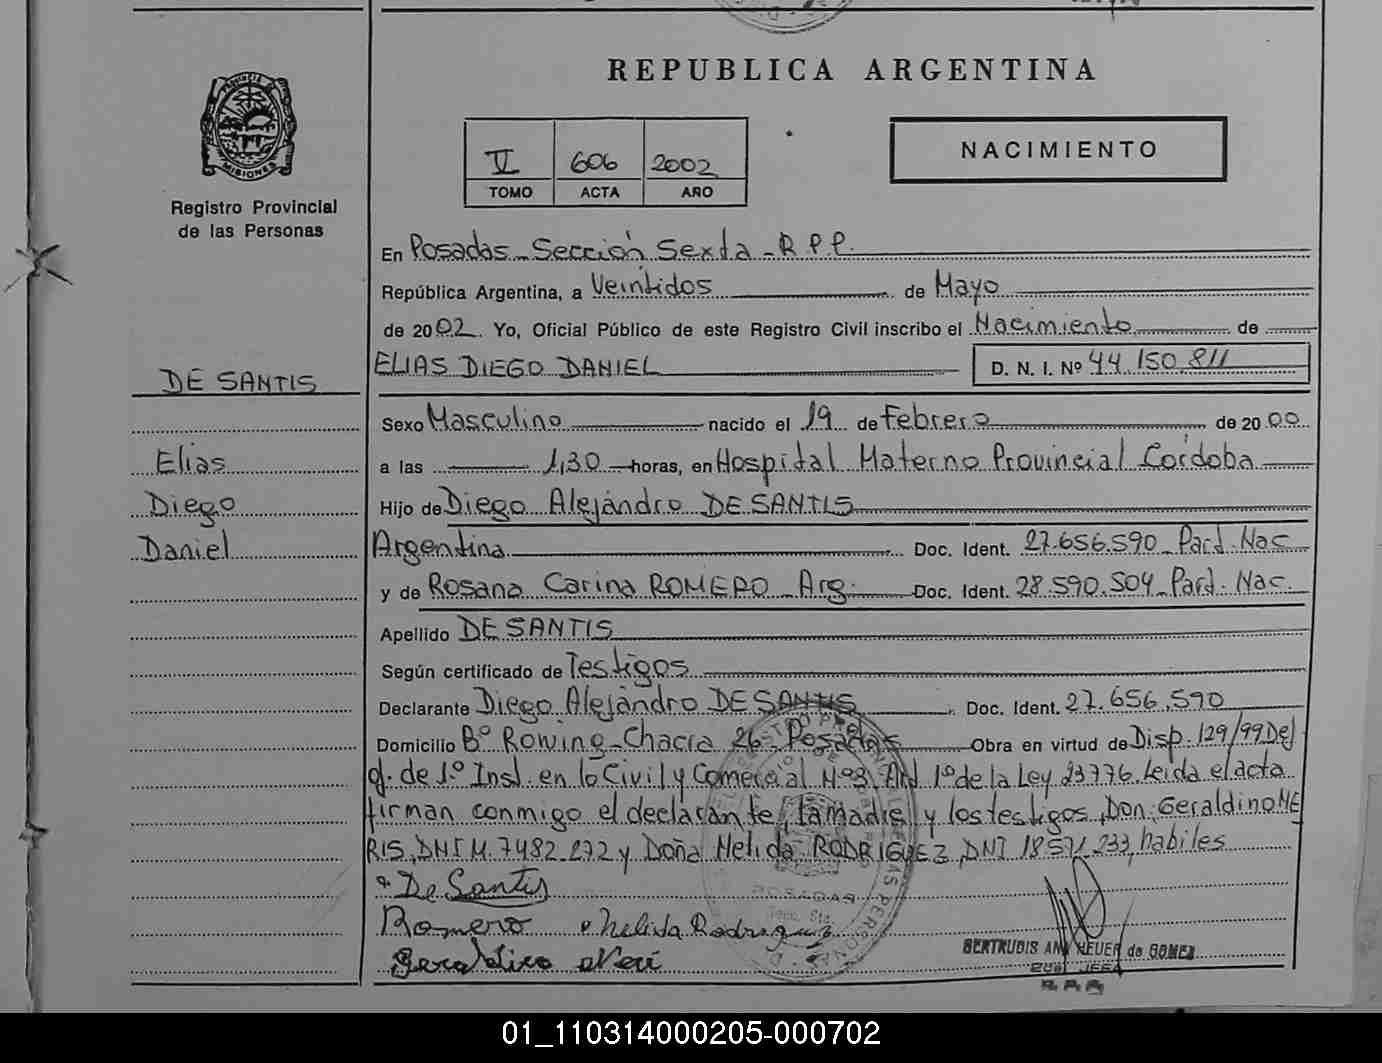 REPUBLICA ARGENTINA
PROVINCIA DE
MISIONES
Registro Provincial
de las Personas
V 606 2002
TOMO ACTA AÑO
NACIMIENTO
En Posadas - Sección Sexta - R.P.P.
República Argentina, a Veintidos de Mayo
de 2002. Yo, Oficial Público de este Registro Civil inscribo el Nacimiento de
DE SANTIS
ELIAS DIEGO DANIEL D. N. I. Nº 44.150.811
Sexo Masculino nacido el 19 de Febrero de 2000
Elias
a las 1,30 horas, en Hospital Materno Provincial Córdoba
Diego
Hijo de Diego Alejandro DE SANTIS
Daniel
Argentina Doc. Ident. 27.656.590 - Pard. Nac
y de Rosana Carina ROMERO - Arg. Doc. Ident. 28.590.504 - Pard. Nac.
Apellido DE SANTIS
Según certificado de Testigos
Declarante Diego Alejandro DE SANTIS Doc. Ident. 27.656.590
Domicilio Bº Rowing - Chacra 26 - Posadas Obra en virtud de Disp. 129/99 Dej
g. de 1.º Inst. en lo Civil y Comercial Nº 3 Art 1º de la Ley 23776. Leida el acta
firman conmigo el declarante, la madre y los testigos, Don: Geraldino NE
RIS, DNI M. 7482.272 y Doña Nelida RODRIGUEZ, DNI 18571.233, habiles
De Santis
Romero Nelida Rodriguez
Geraldino Neri
POSADAS
GERTRUDIS ANA HEUER de GOMEZ
SUB JEFA
01_110314000205-000702